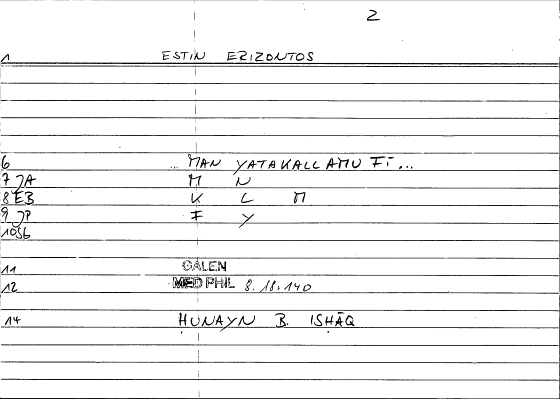 2
1 ESTIN ERIZONTOS
6 ... MAN YATAKALLAMU FĪ...
7 JA M N
8 EB K L M
9 JP F Y
10 SG
11 GALEN
12 MED PHIL 8.18.140
14 ḤUNAYN B. ISḤĀQ